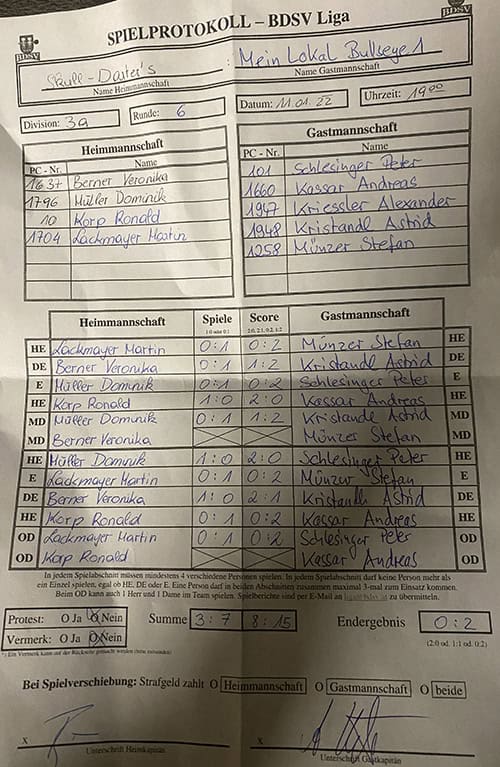 SPIELPROTOKOLL – BDSV Liga
BDSV
BDSV
Skull-Darter's : Mein Lokal Bullseye 1
Name Heimmannschaft Name Gastmannschaft
Division: 3a Runde: 6 Datum: 11.01.22 Uhrzeit: 19°°
Heimmannschaft
PC - Nr. Name
1637 Berner Veronika
1796 Müller Dominik
10 Korp Ronald
1704 Lackmayer Martin
Gastmannschaft
PC - Nr. Name
101 Schlesinger Peter
1660 Kassar Andreas
1947 Kriessler Alexander
1948 Kristandl Astrid
1258 Münzer Stefan
Heimmannschaft Spiele Score Gastmannschaft
1:0 oder 0:1 2:0, 2:1, 0:2, 1:2
HE Lackmayer Martin 0:1 0:2 Münzer Stefan HE
DE Berner Veronika 0:1 1:2 Kristandl Astrid DE
E Müller Dominik 0:1 0:2 Schlesinger Peter E
HE Korp Ronald 1:0 2:0 Kassar Andreas HE
MD Müller Dominik 0:1 1:2 Kristandl Astrid MD
MD Berner Veronika Münzer Stefan MD
HE Müller Dominik 1:0 2:0 Schlesinger Peter HE
E Lackmayer Martin 0:1 0:2 Münzer Stefan E
DE Berner Veronika 1:0 2:1 Kristandl Astrid DE
HE Korp Ronald 0:1 0:2 Kassar Andreas HE
OD Lackmayer Martin 0:1 0:2 Schlesinger Peter OD
OD Korp Ronald Kassar Andreas OD
In jedem Spielabschnitt müssen mindestens 4 verschiedene Personen spielen. In jedem Spielabschnitt darf keine Person mehr als
ein Einzel spielen, egal ob HE, DE oder E. Eine Person darf in beiden Abschnitten zusammen maximal 3-mal zum Einsatz kommen.
Beim OD kann auch 1 Herr und 1 Dame im Team spielen. Spielberichte sind per E-Mail an zu übermitteln.
Protest: O Ja O Nein Summe 3:7 8:15 Endergebnis 0:2
Vermerk: O Ja O Nein (2:0 od. 1:1 od. 0:2)
*) Ein Vermerk kann auf der Rückseite gemacht werden
Bei Spielverschiebung: Strafgeld zahlt O Heimmannschaft O Gastmannschaft O beide
x x
Unterschrift Heimkapitän Unterschrift Gastkapitän